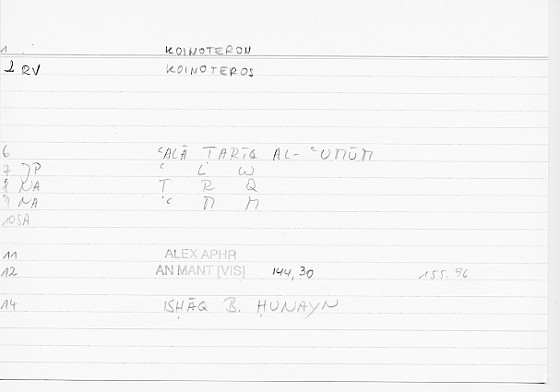 1 KOINOTERON
2 RV KOINOTEROS
6 ʿALĀ ṬARĪQ AL-ʿUMŪM
7 JP ʿ L W
8 NA Ṭ R Q
9 NA ʿ M M
10 SA
11 ALEX APHR
12 AN MANT [VIS] 144,30 155.96
14 ISḤĀQ B. ḤUNAYN